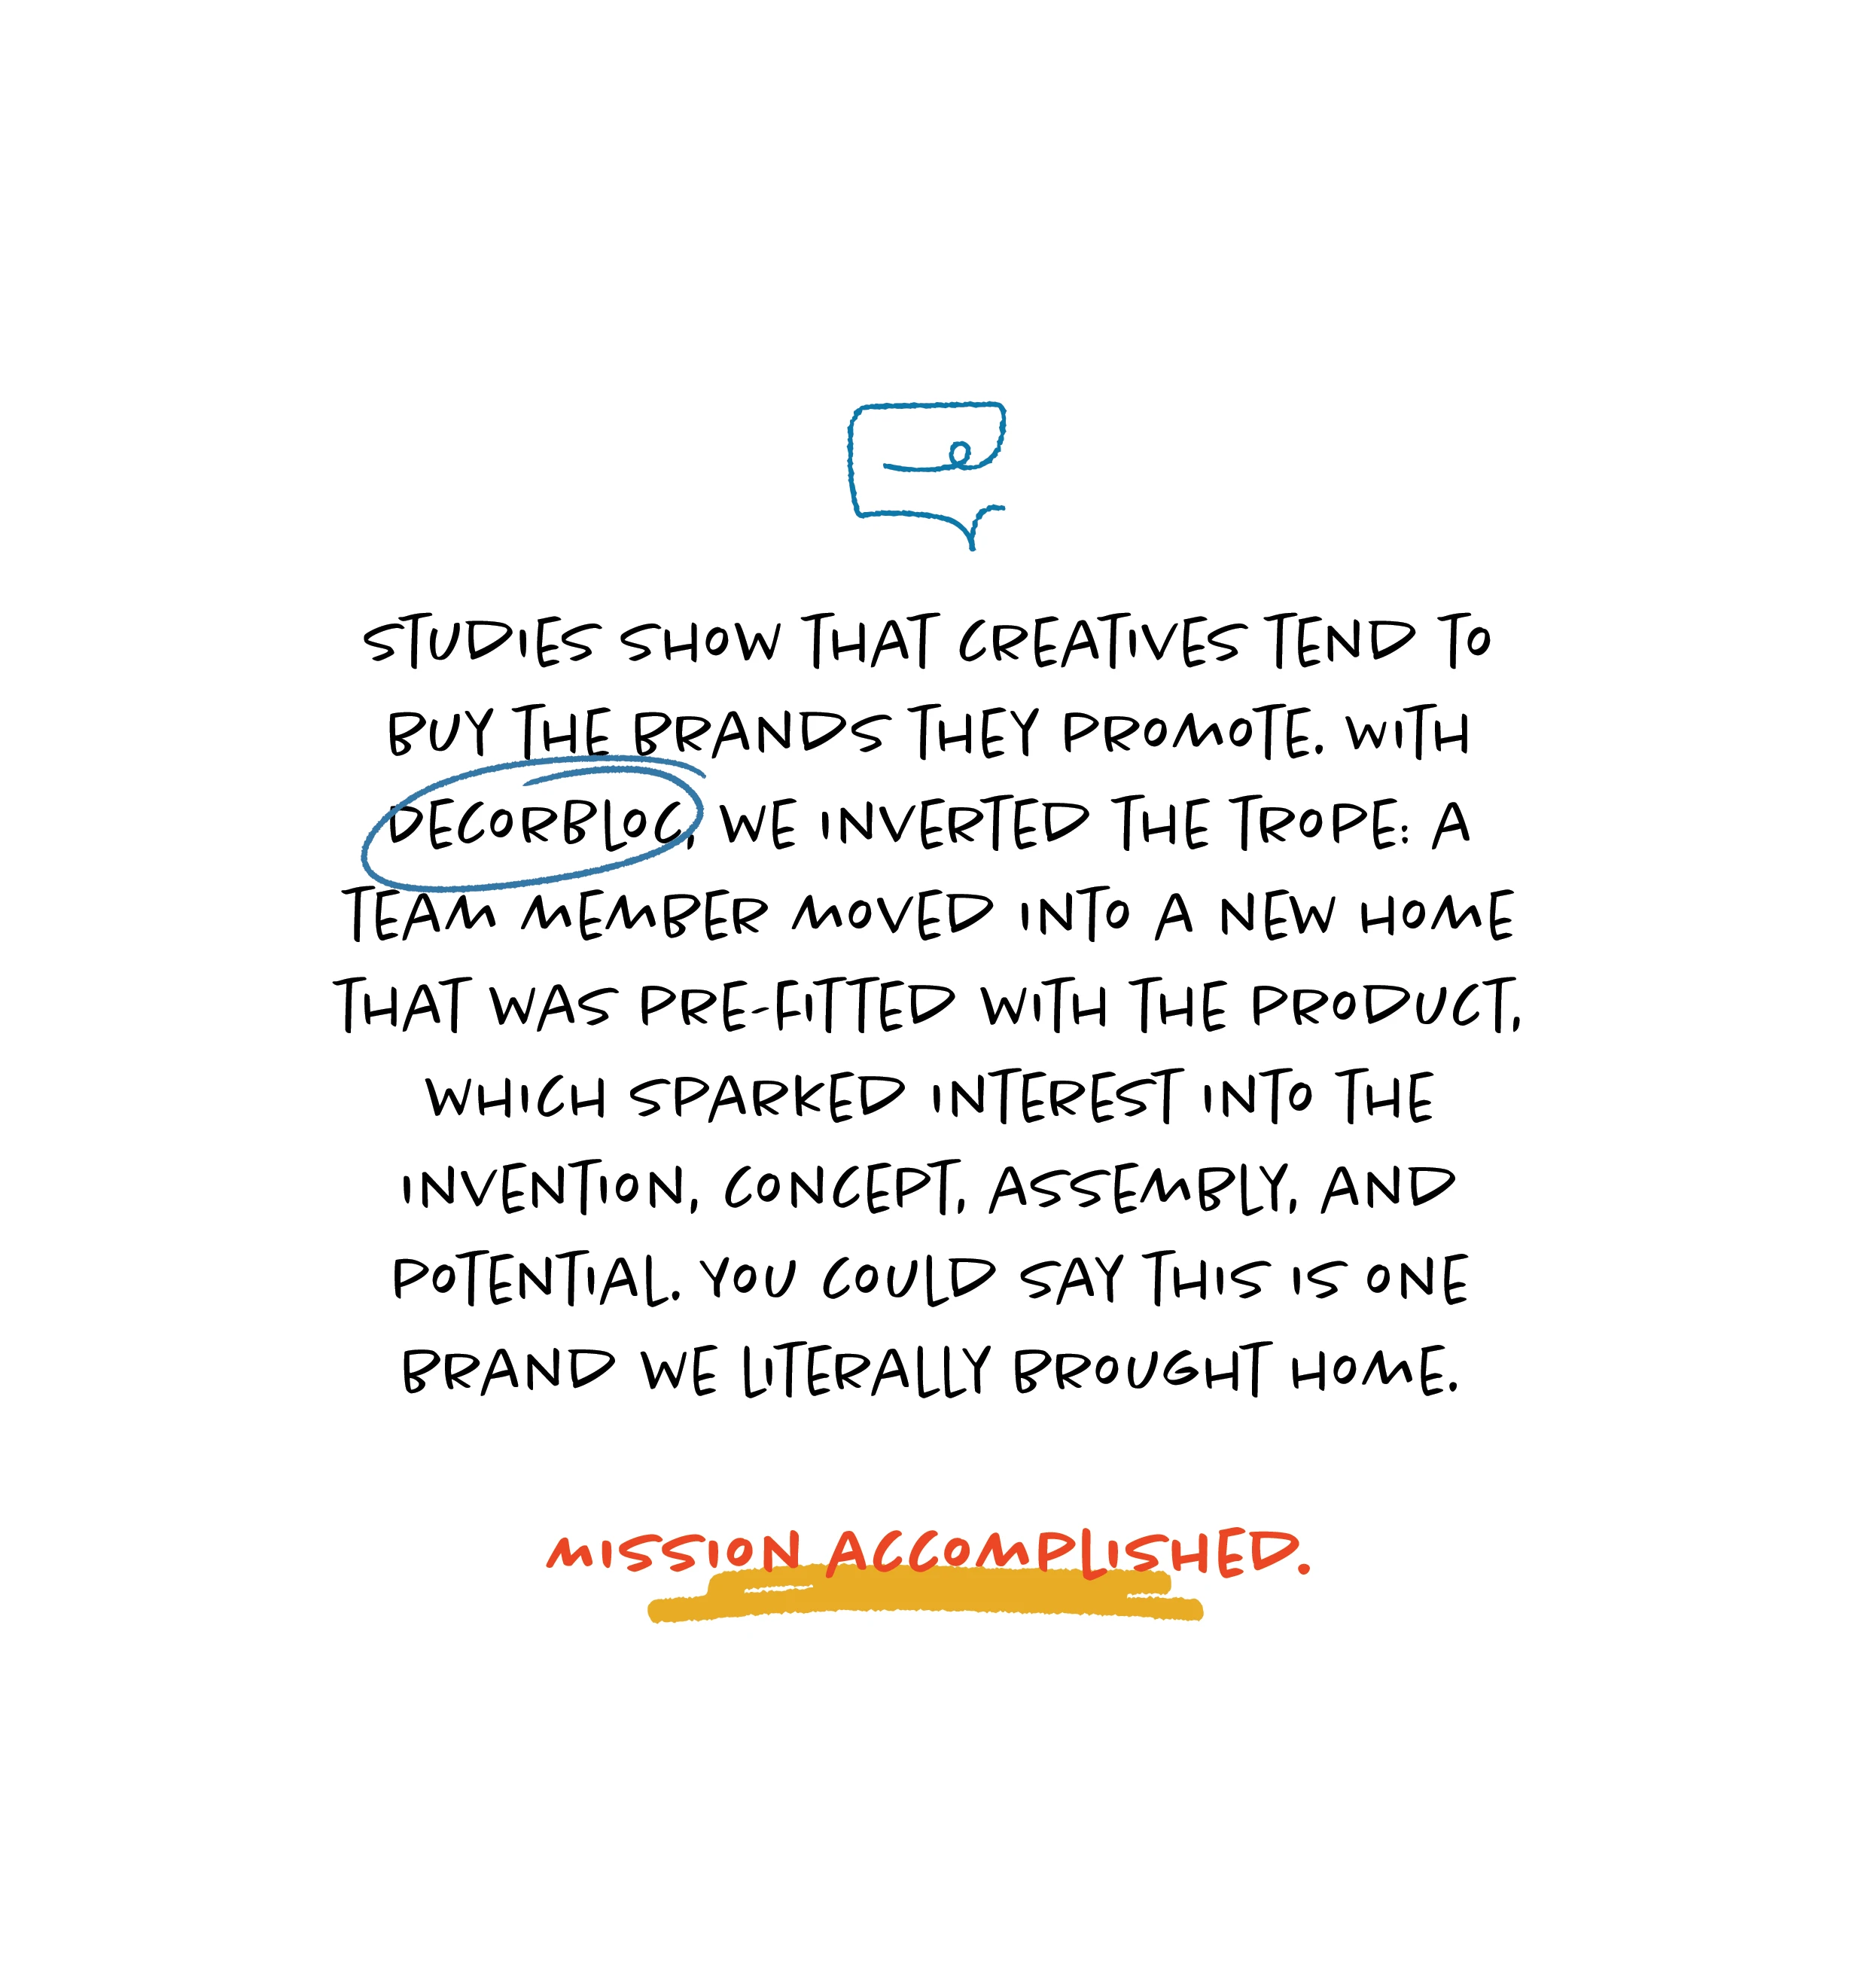 STUDIES SHOW THAT CREATIVES TEND TO
BUY THE BRANDS THEY PROMOTE. WITH
DECORBLOC, WE INVERTED THE TROPE: A
TEAM MEMBER MOVED INTO A NEW HOME
THAT WAS PRE-FITTED WITH THE PRODUCT,
WHICH SPARKED INTEREST INTO THE
INVENTION, CONCEPT, ASSEMBLY, AND
POTENTIAL. YOU COULD SAY THIS IS ONE
BRAND WE LITERALLY BROUGHT HOME.
MISSION ACCOMPLISHED.